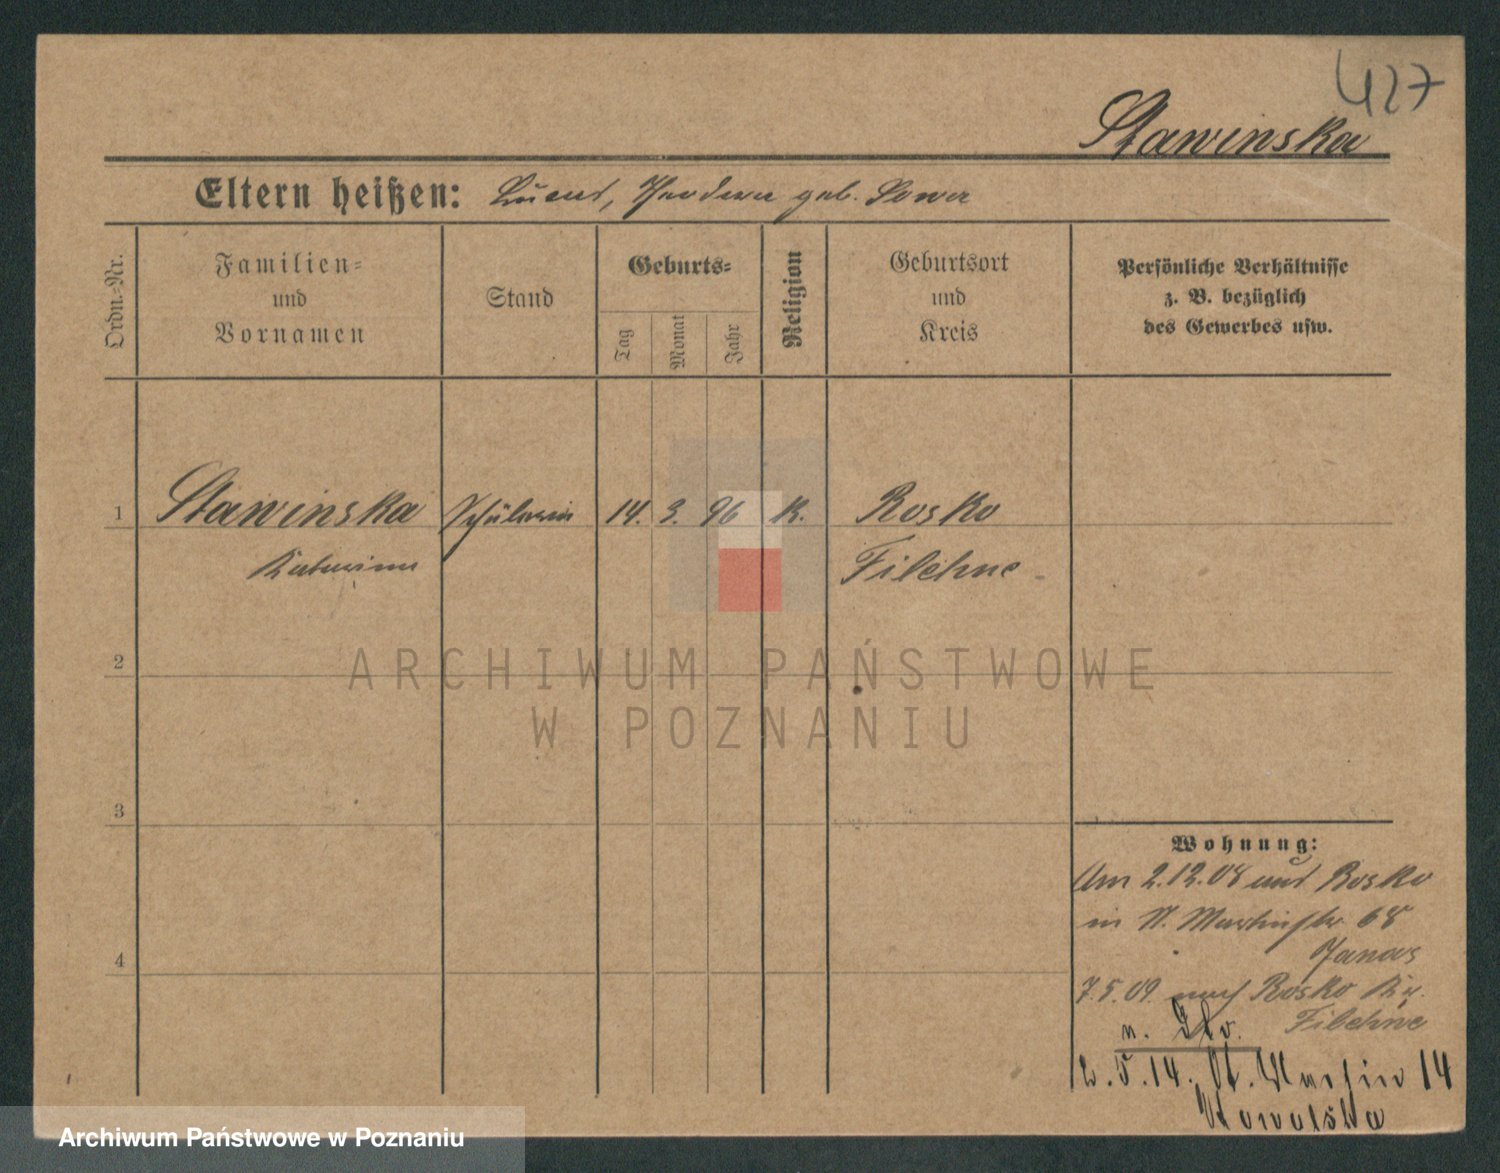 427
Stawinska
Eltern heißen: geb. Sowa
Ordn.-Nr.
Familien-
und
Vornamen
Stand
Geburts-
Tag
Monat
Jahr
Religion
Geburtsort
und
Kreis
Persönliche Verhältnisse
z. B. bezüglich
des Gewerbes usw.
1 Stawinska Schülerin 14. 3. 96 K. Rosko
Katarina Filehne
2
ARCHIWUM PAŃSTWOWE
W POZNANIU
3
Wohnung:
Am 2.12.08 aus Rosko
in St. Martinstr. 68
Janas
4
7.5.09. nach Rosko Kr.
Filehne
2.5.14. St. Martin 14
Kowalska
Archiwum Państwowe w Poznaniu